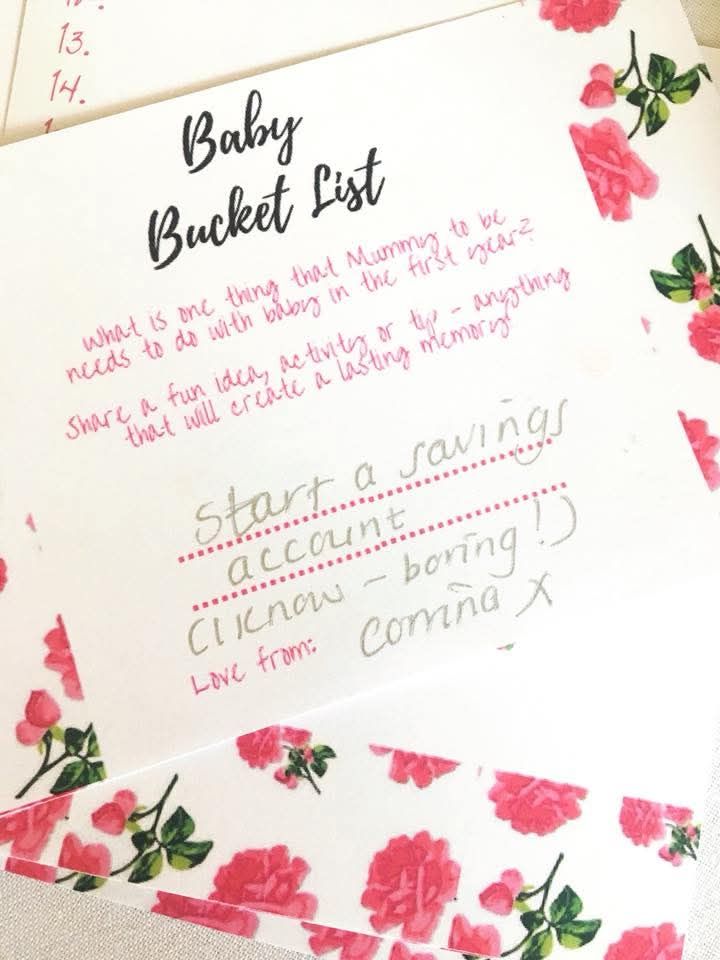 13.
14.
Baby
Bucket List
What is one thing that Mummy to be
needs to do with baby in the first year?
Share a fun idea, activity or tip - anything
that will create a lasting memory!
Start a savings
account
(I know - boring!)
Love from: Corrina X